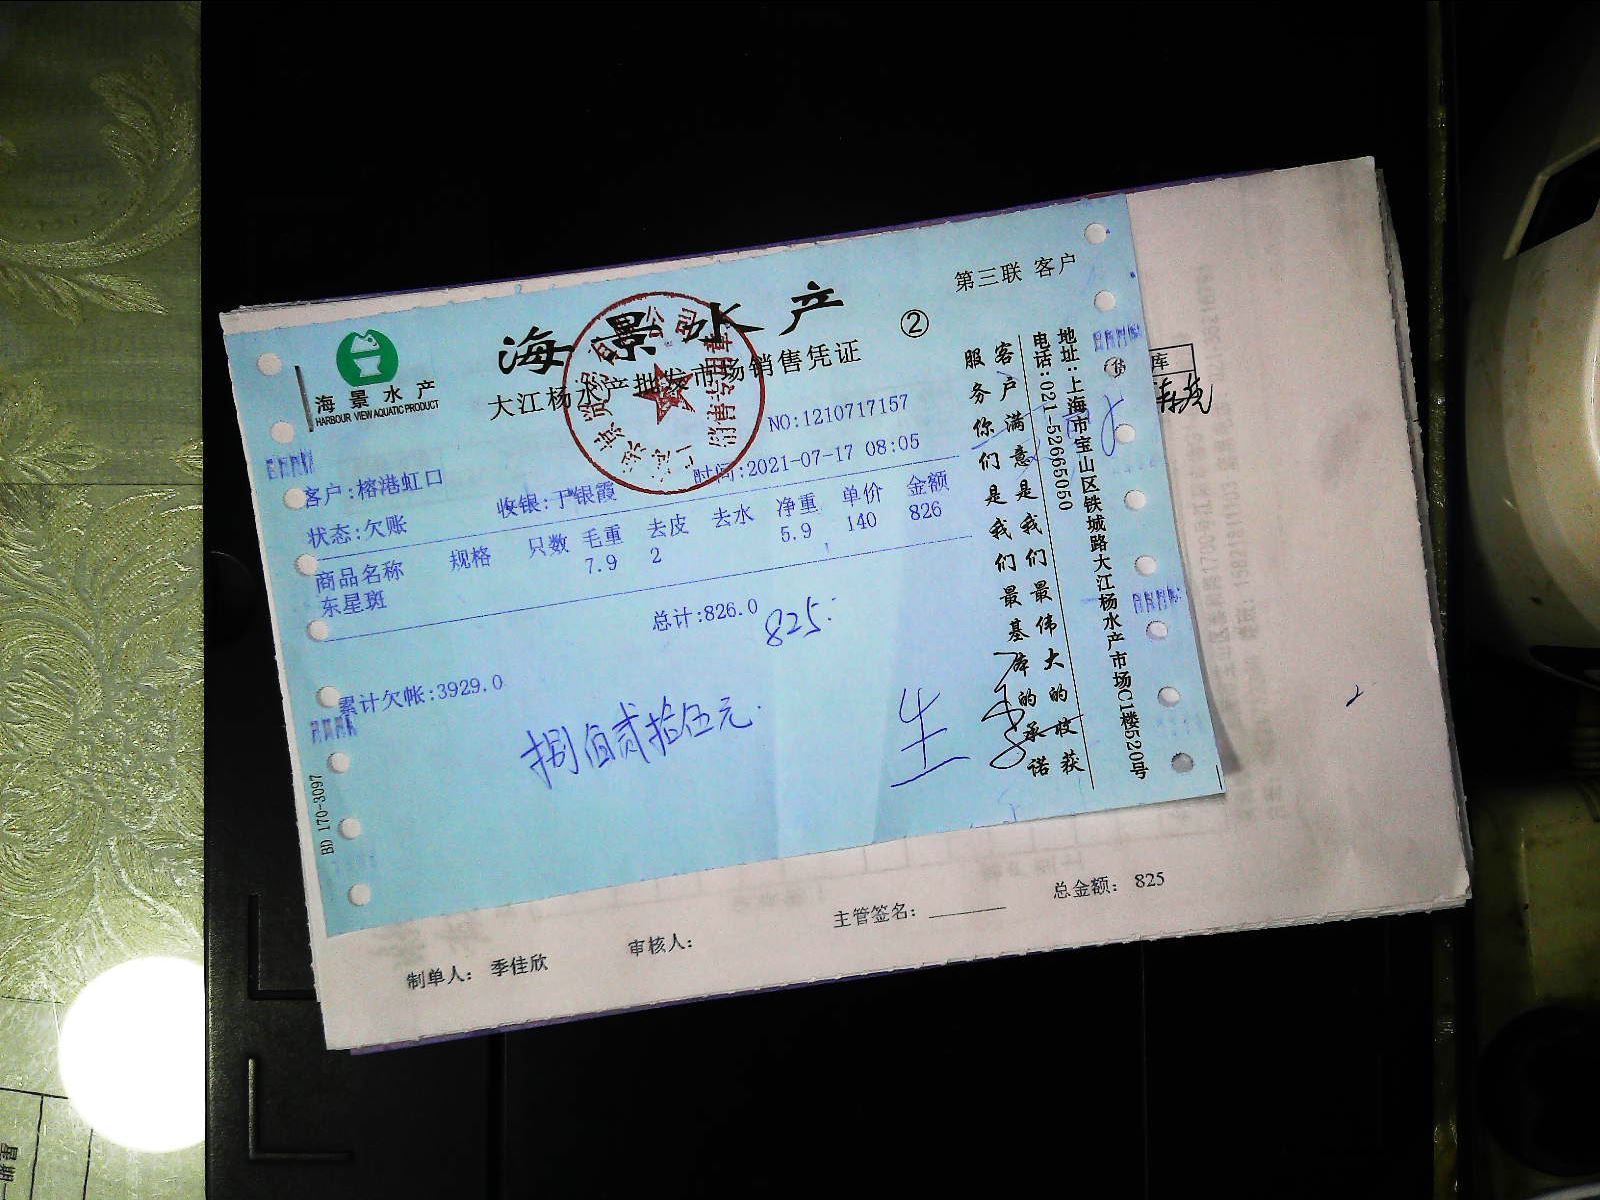 海景水产
HARBOUR VIEW AQUATIC PRODUCT
海景水产
②
第三联 客户
大江杨水产批发市场销售凭证
NO:1210717157
客户:榕港虹口
收银:于银霞
时间:2021-07-17 08:05
状态:欠账
商品名称 规格 只数 毛重 去皮 去水 净重 单价 金额
东星斑 7.9 2 5.9 140 826
总计:826.0
825.
累计欠帐:3929.0
捌佰贰拾伍元.
生
客户满意是我们最伟大的收获
服务你们是我们最基本的承诺
地址:上海市宝山区铁城路大江杨水产市场C1楼520号
电话:021-52665050
销售专用章
BD 170-3097
库
总金额: 825
主管签名:
审核人:
制单人: 季佳欣